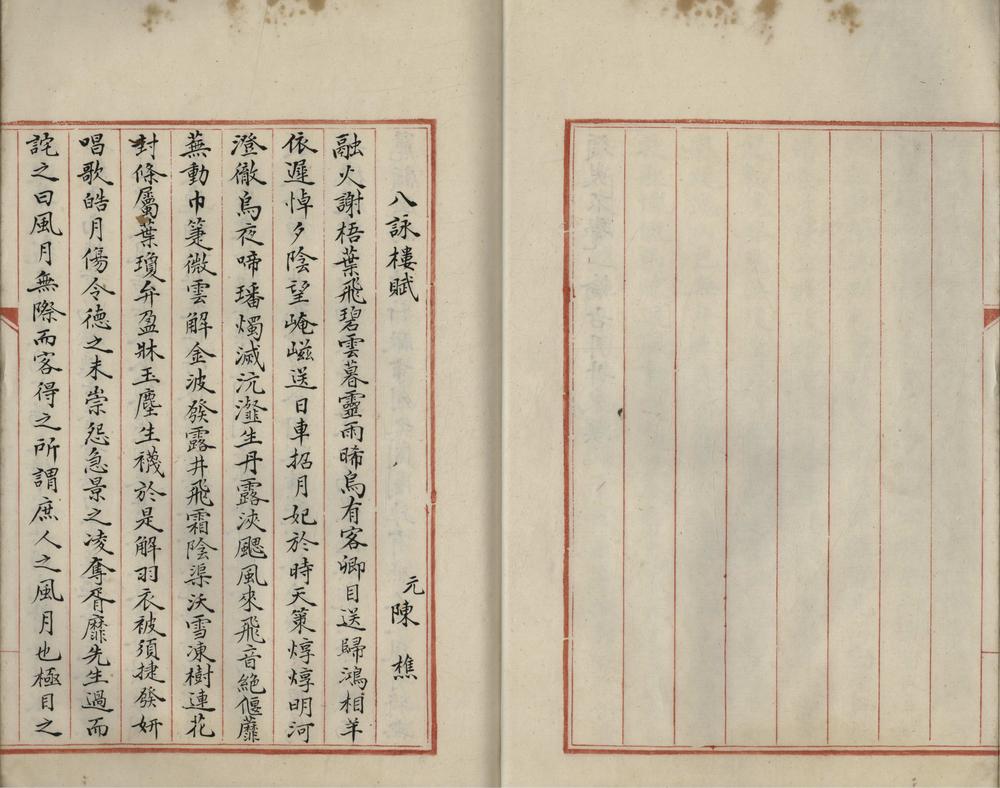 八詠樓賦
元陳樵
融火謝梧葉飛碧雲暮靈雨晞烏有客卿目送歸鴻相羊
依遲悼夕陰望崦嵫送日車招月妃於時天策焞焞明河
澄徹烏夜啼璠燭滅沆瀣生丹露浹颸風來飛音絶偃蘼
蕪動巾箑微雲解金波發露井飛霜陰渠沃雪凍樹連花
封條屬葉瓊弁盈牀玉塵生襪於是解羽衣被須捷發妍
唱歌皓月傷令德之未崇怨急景之凌奪胥靡先生過而
詫之曰風月無際而客得之所謂庶人之風月也極目之